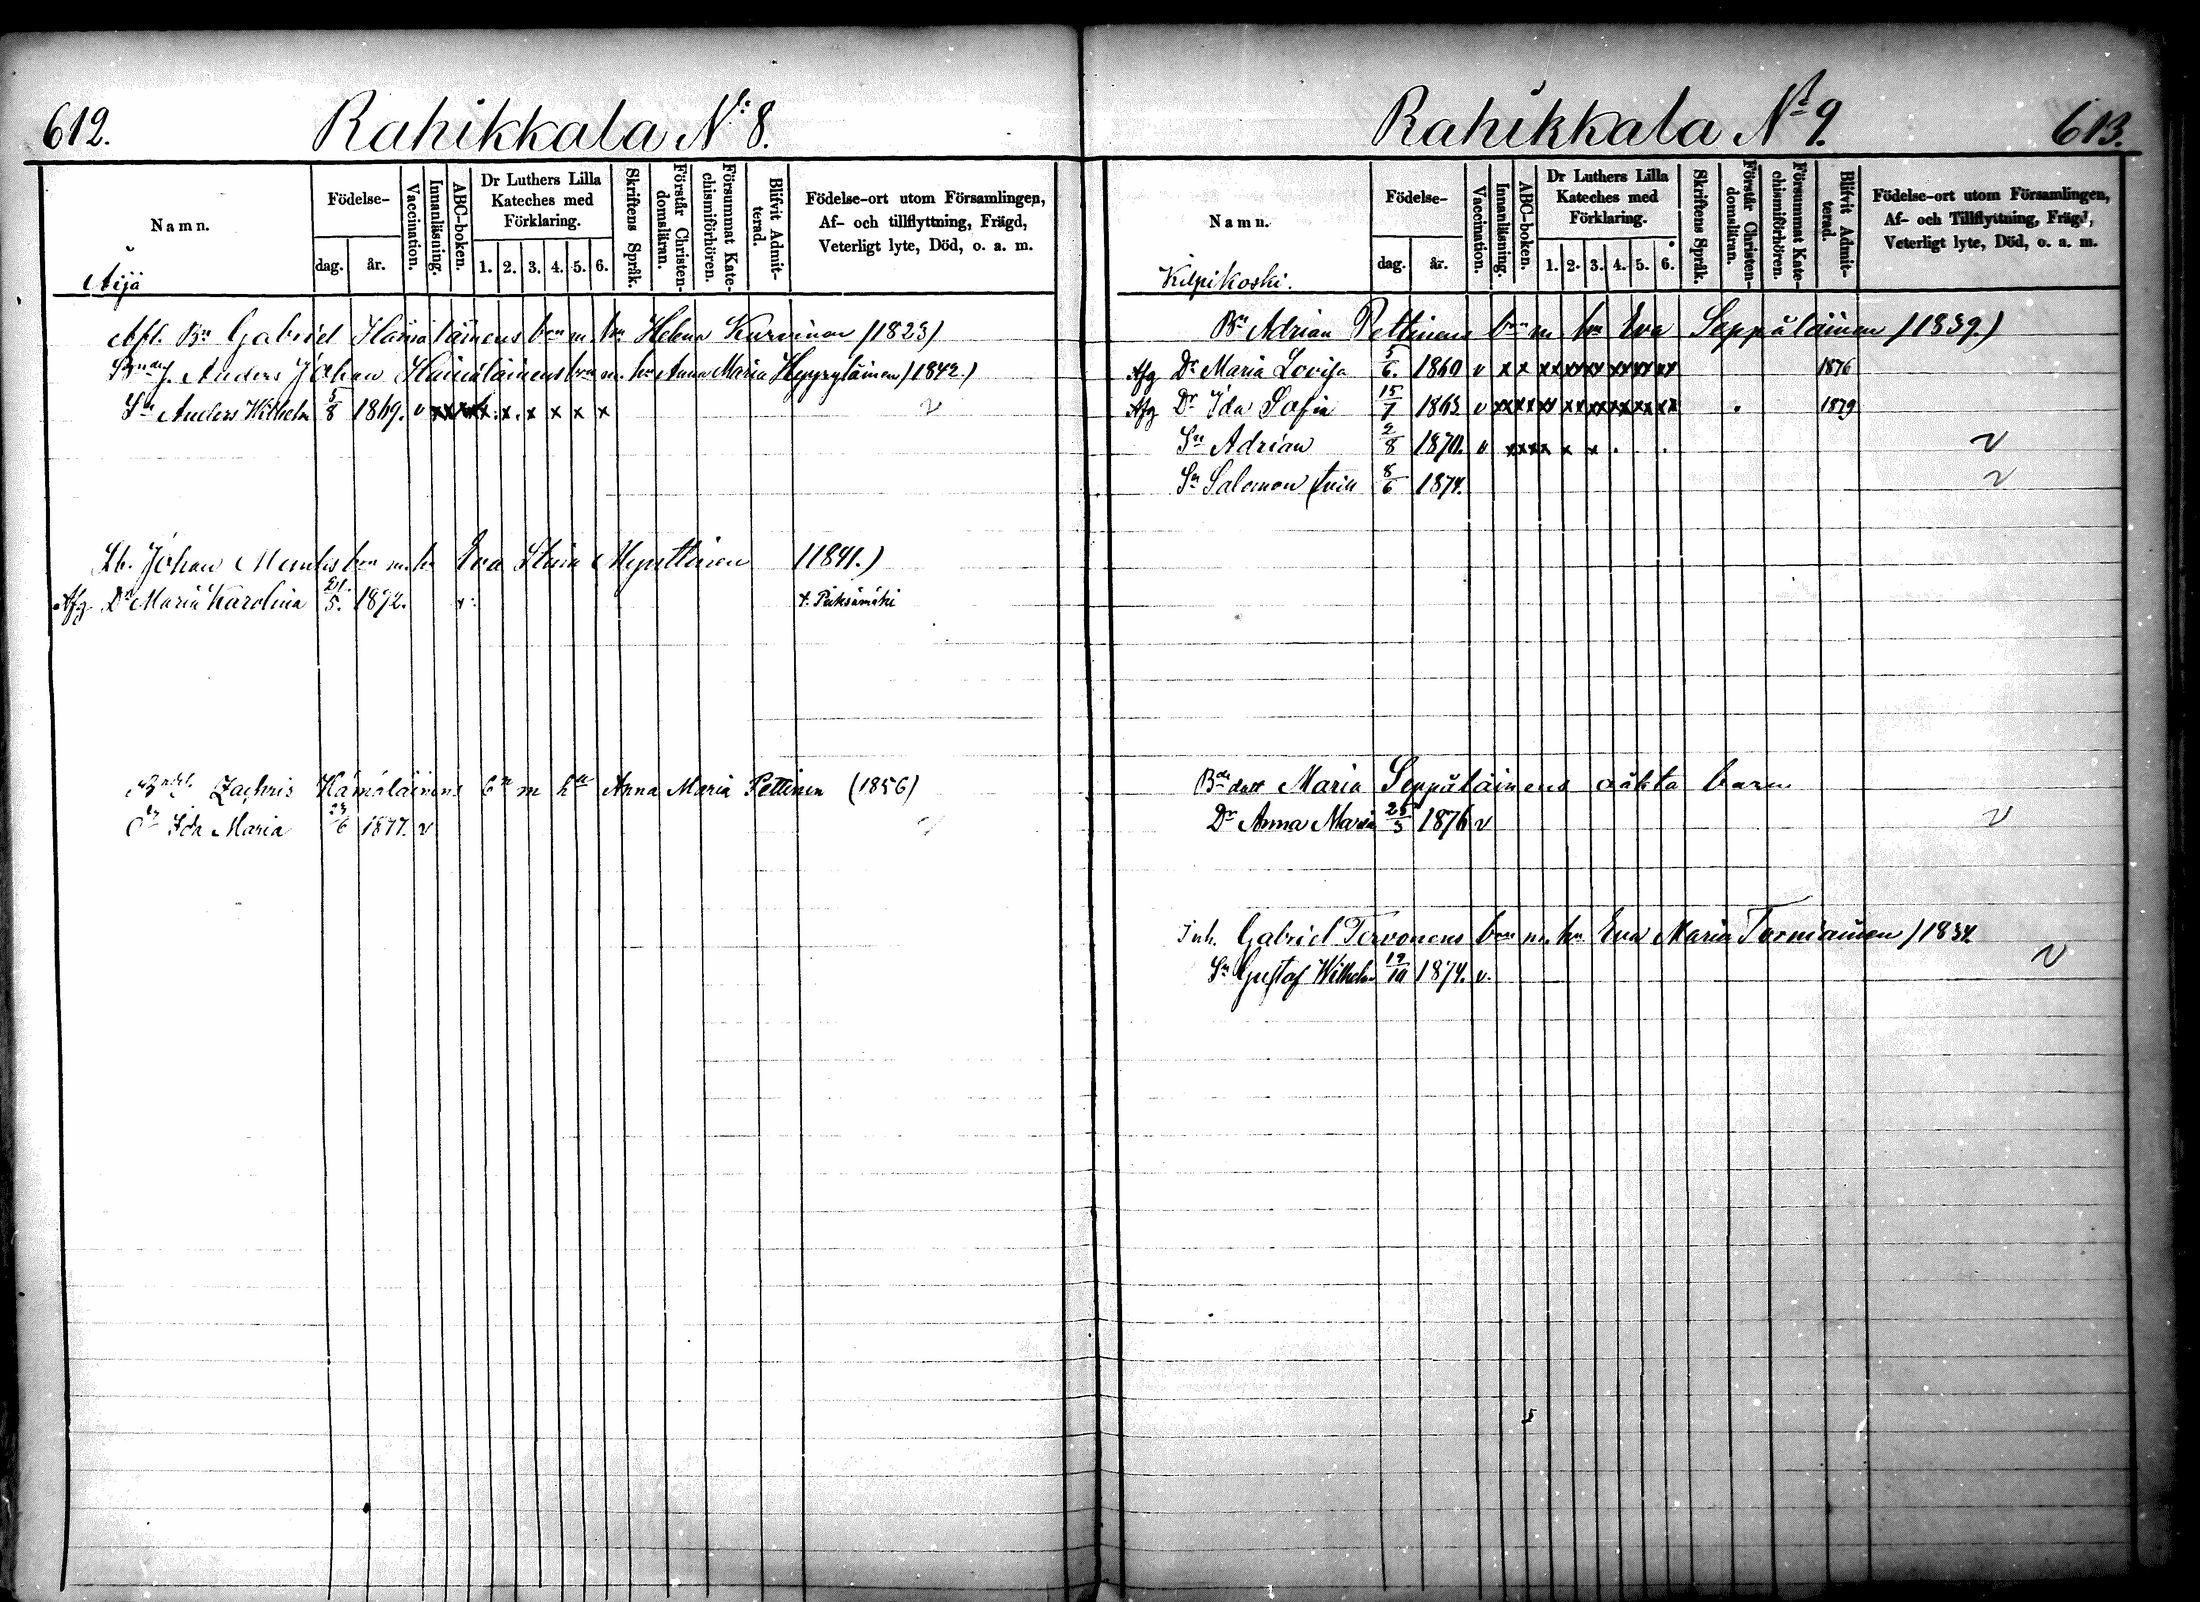 612.
Rahikkala N:o 8.
Namn.
Födelse-
dag.
år.
Vaccination.
Innanläsning.
ABC-boken.
Dr Luthers Lilla
Kateches med
Förklaring.
1. 2. 3. 4. 5. 6.
Skriftens Språk.
Förstår Christen-
domsläran.
Försummat Kate-
chismiförhören.
Blifvit Admit-
terad.
Födelse-ort utom Församlingen,
Af- och tillflyttning, Frägd,
Veterligt lyte, Död, o. a. m.
Äijä
Afl. Bn Gabriel Hämäläinens bn m. hu Helena Kurvinen (1823)
Anders Johan Hämäläinens bn m. hu Anna Maria Hyyryläinen (1842.)
Sn Anders Wilhelm 5/8 1869. v x x x x x x x x x v
Johan bn m. hu Eva Stina Mynttinen (1841.)
Afg Dr Maria Karolina 21/5. 1872. x. t. Pieksämäki
Zachris Hämäläinens bn m hu Anna Maria Pettinen (1856)
Dr Ida Maria 23/6 1877. v v
Rahikkala No 9.
613.
Namn.
Födelse-
dag.
år.
Vaccination.
Innanläsning.
ABC-boken.
Dr Luthers Lilla
Kateches med
Förklaring.
1. 2. 3. 4. 5. 6.
Skriftens Språk.
Förstår Christen-
domsläran.
Försummat Kate-
chismiförhören.
Blifvit Admit-
terad.
Födelse-ort utom Församlingen,
Af- och Tillflyttning, Frägd,
Veterligt lyte, Död, o. a. m.
Kilpikoski.
Bn Adrian Pettinens bn m hu Eva Seppäläinen (1839)
Afg Dr Maria Lovisa 5/6. 1860 v x x xx xx xx xx xx xx 1876
Afg Dr Ida Sofia 15/7 1863 v xx xx xx xx xx xx xx xx 1879
Sn Adrian 2/8 1870. v xx xx x x v
Sn Salomon 8/6 1874. v
Bn dotr Maria Seppäläinens oäkta barn
Dr Anna Maria 25/3 1876 v v
Inh. Gabriel Tervonens bn m. hu Eva Maria Torniainen (1834
Sn Gustaf Wilhelm 19/10 1874. v. v